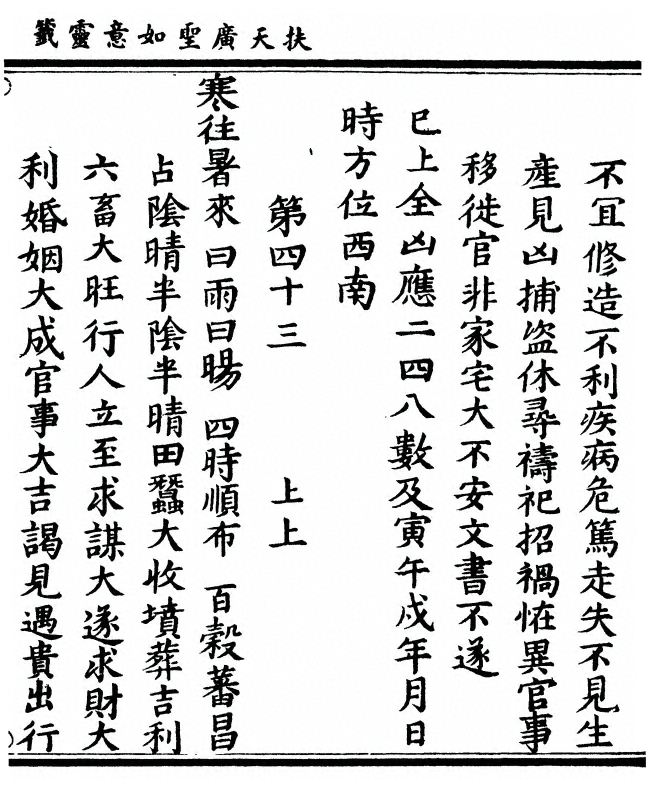 扶天廣聖如意靈籤
不冝修造不利疾病危篤走失不見生
產見凶捕盜休尋禱祀招禍恠異官事
移徙官非家宅大不安文書不遂
巳上全凶應二四八數及寅午戌年月日
時方位西南
第四十三 上上
寒往暑來 曰雨曰暘 四時順布 百穀蕃昌
占陰晴半陰半晴田蠶大收墳葬吉利
六畜大旺行人立至求謀大遂求財大
利婚姻大成官事大吉謁見遇貴出行